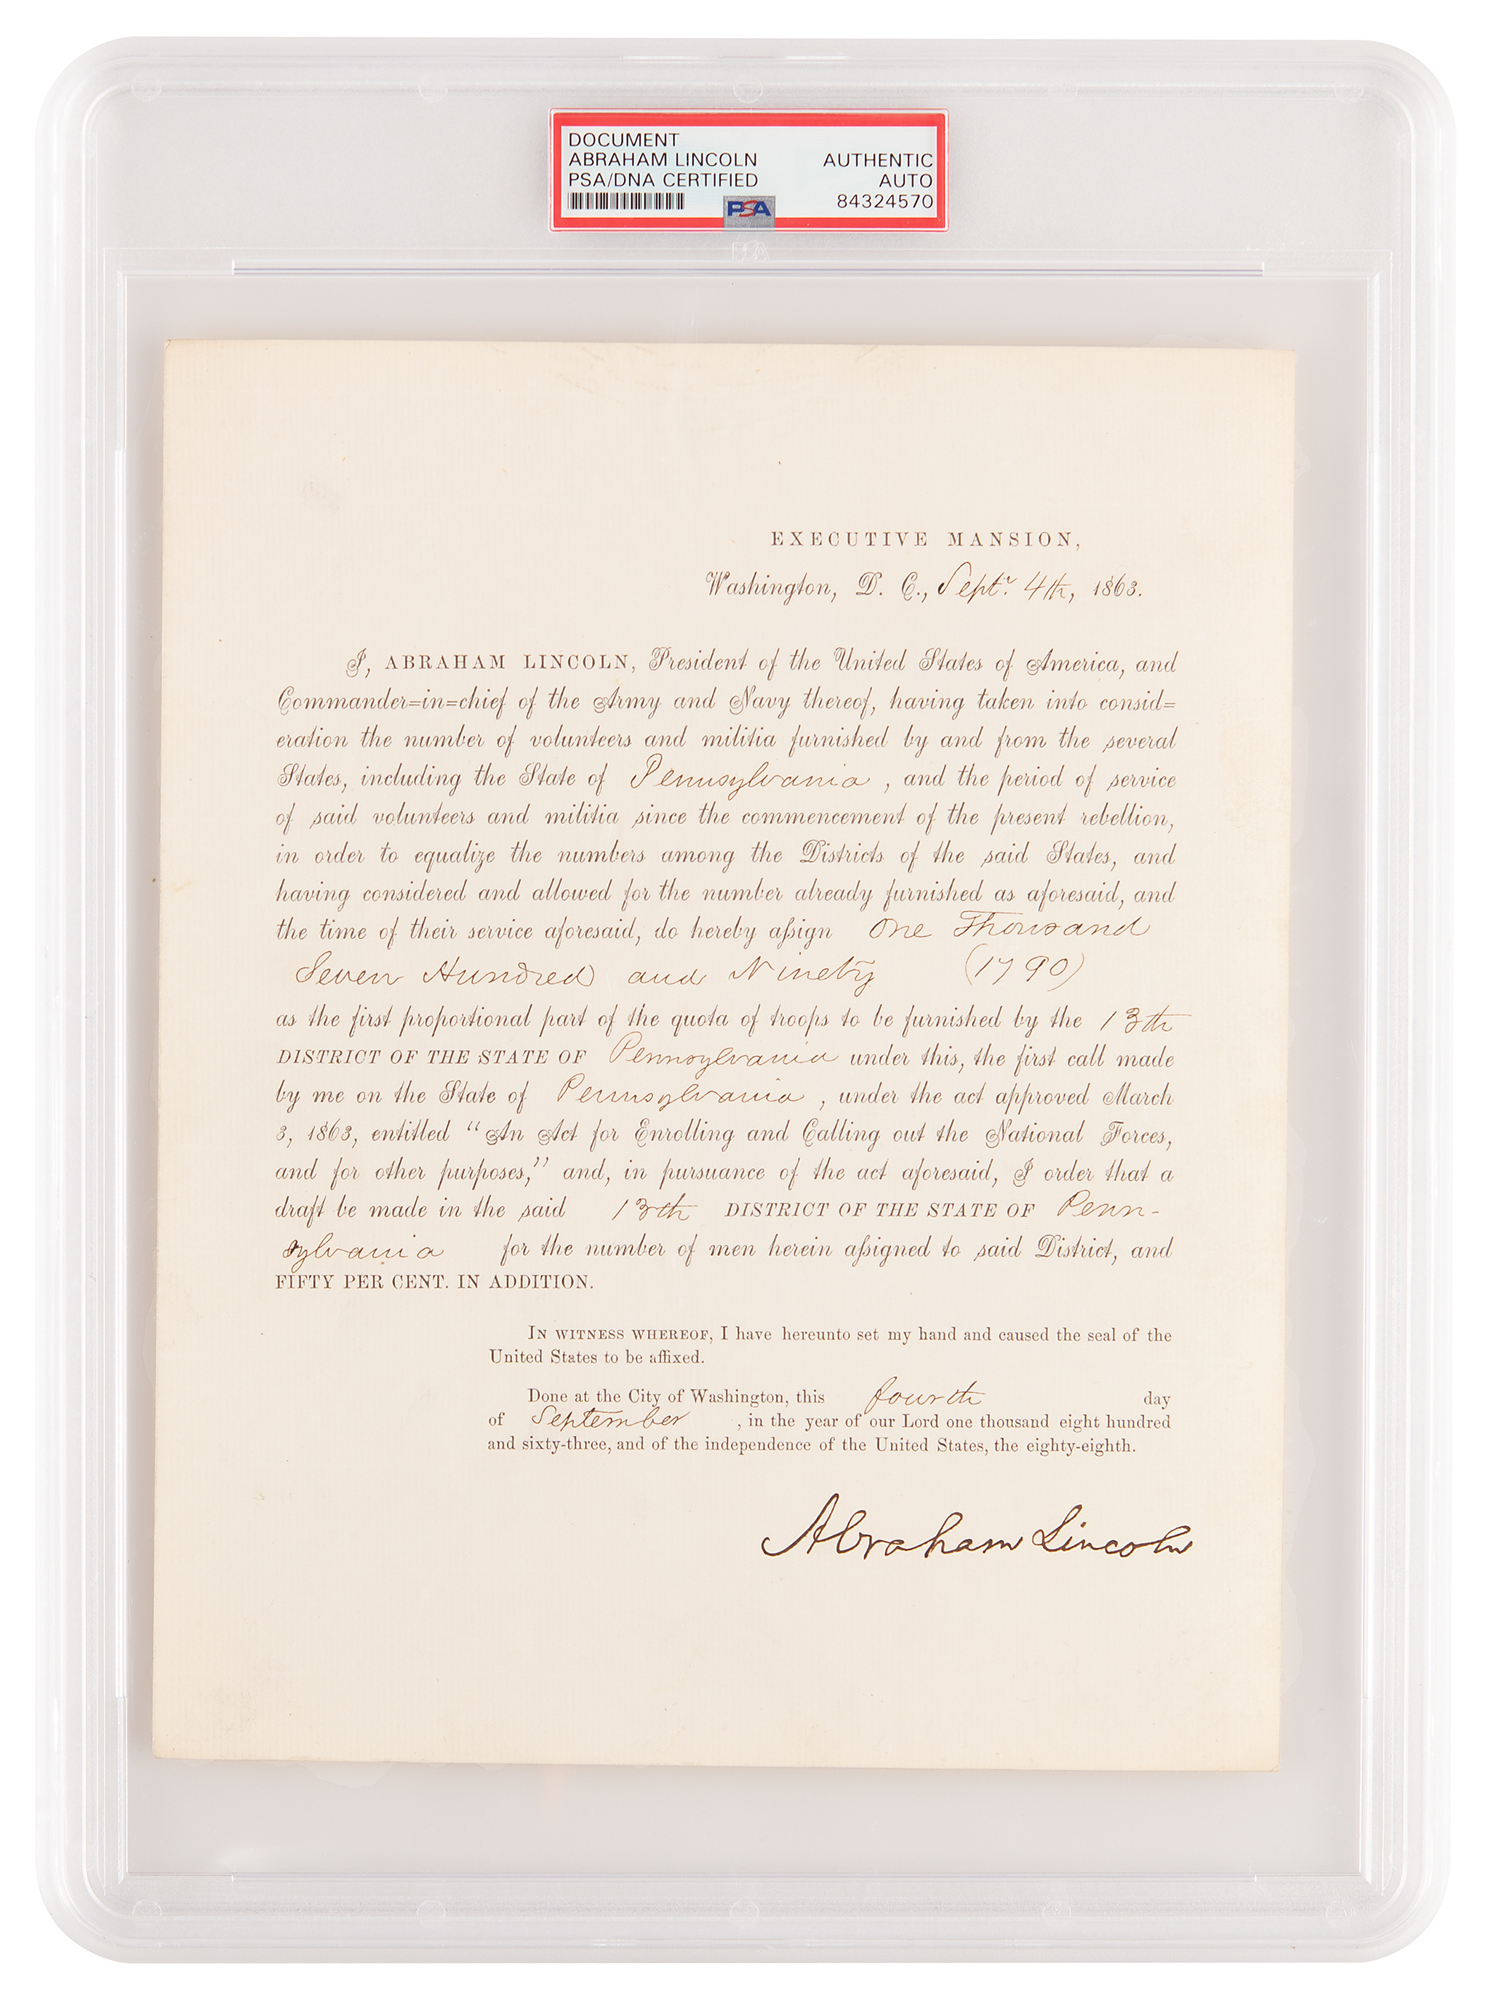 DOCUMENT
ABRAHAM LINCOLN AUTHENTIC
PSA/DNA CERTIFIED AUTO
PSA 84324570
EXECUTIVE MANSION,
Washington, D. C., Septr. 4th, 1863.
I, ABRAHAM LINCOLN, President of the United States of America, and
Commander=in=chief of the Army and Navy thereof, having taken into consid=
eration the number of volunteers and militia furnished by and from the several
States, including the State of Pennsylvania, and the period of service
of said volunteers and militia since the commencement of the present rebellion,
in order to equalize the numbers among the Districts of the said States, and
having considered and allowed for the number already furnished as aforesaid, and
the time of their service aforesaid, do hereby aſsign One Thousand
Seven Hundred and Ninety (1790)
as the first proportional part of the quota of troops to be furnished by the 13th
DISTRICT OF THE STATE OF Pennsylvania under this, the first call made
by me on the State of Pennsylvania, under the act approved March
3, 1863, entitled "An Act for Enrolling and Calling out the National Forces,
and for other purposes," and, in pursuance of the act aforesaid, I order that a
draft be made in the said 13th DISTRICT OF THE STATE OF Penn-
sylvania for the number of men herein aſsigned to said District, and
FIFTY PER CENT. IN ADDITION.
IN WITNESS WHEREOF, I have hereunto set my hand and caused the seal of the
United States to be affixed.
Done at the City of Washington, this fourth day
of September, in the year of our Lord one thousand eight hundred
and sixty-three, and of the independence of the United States, the eighty-eighth.
Abraham Lincoln